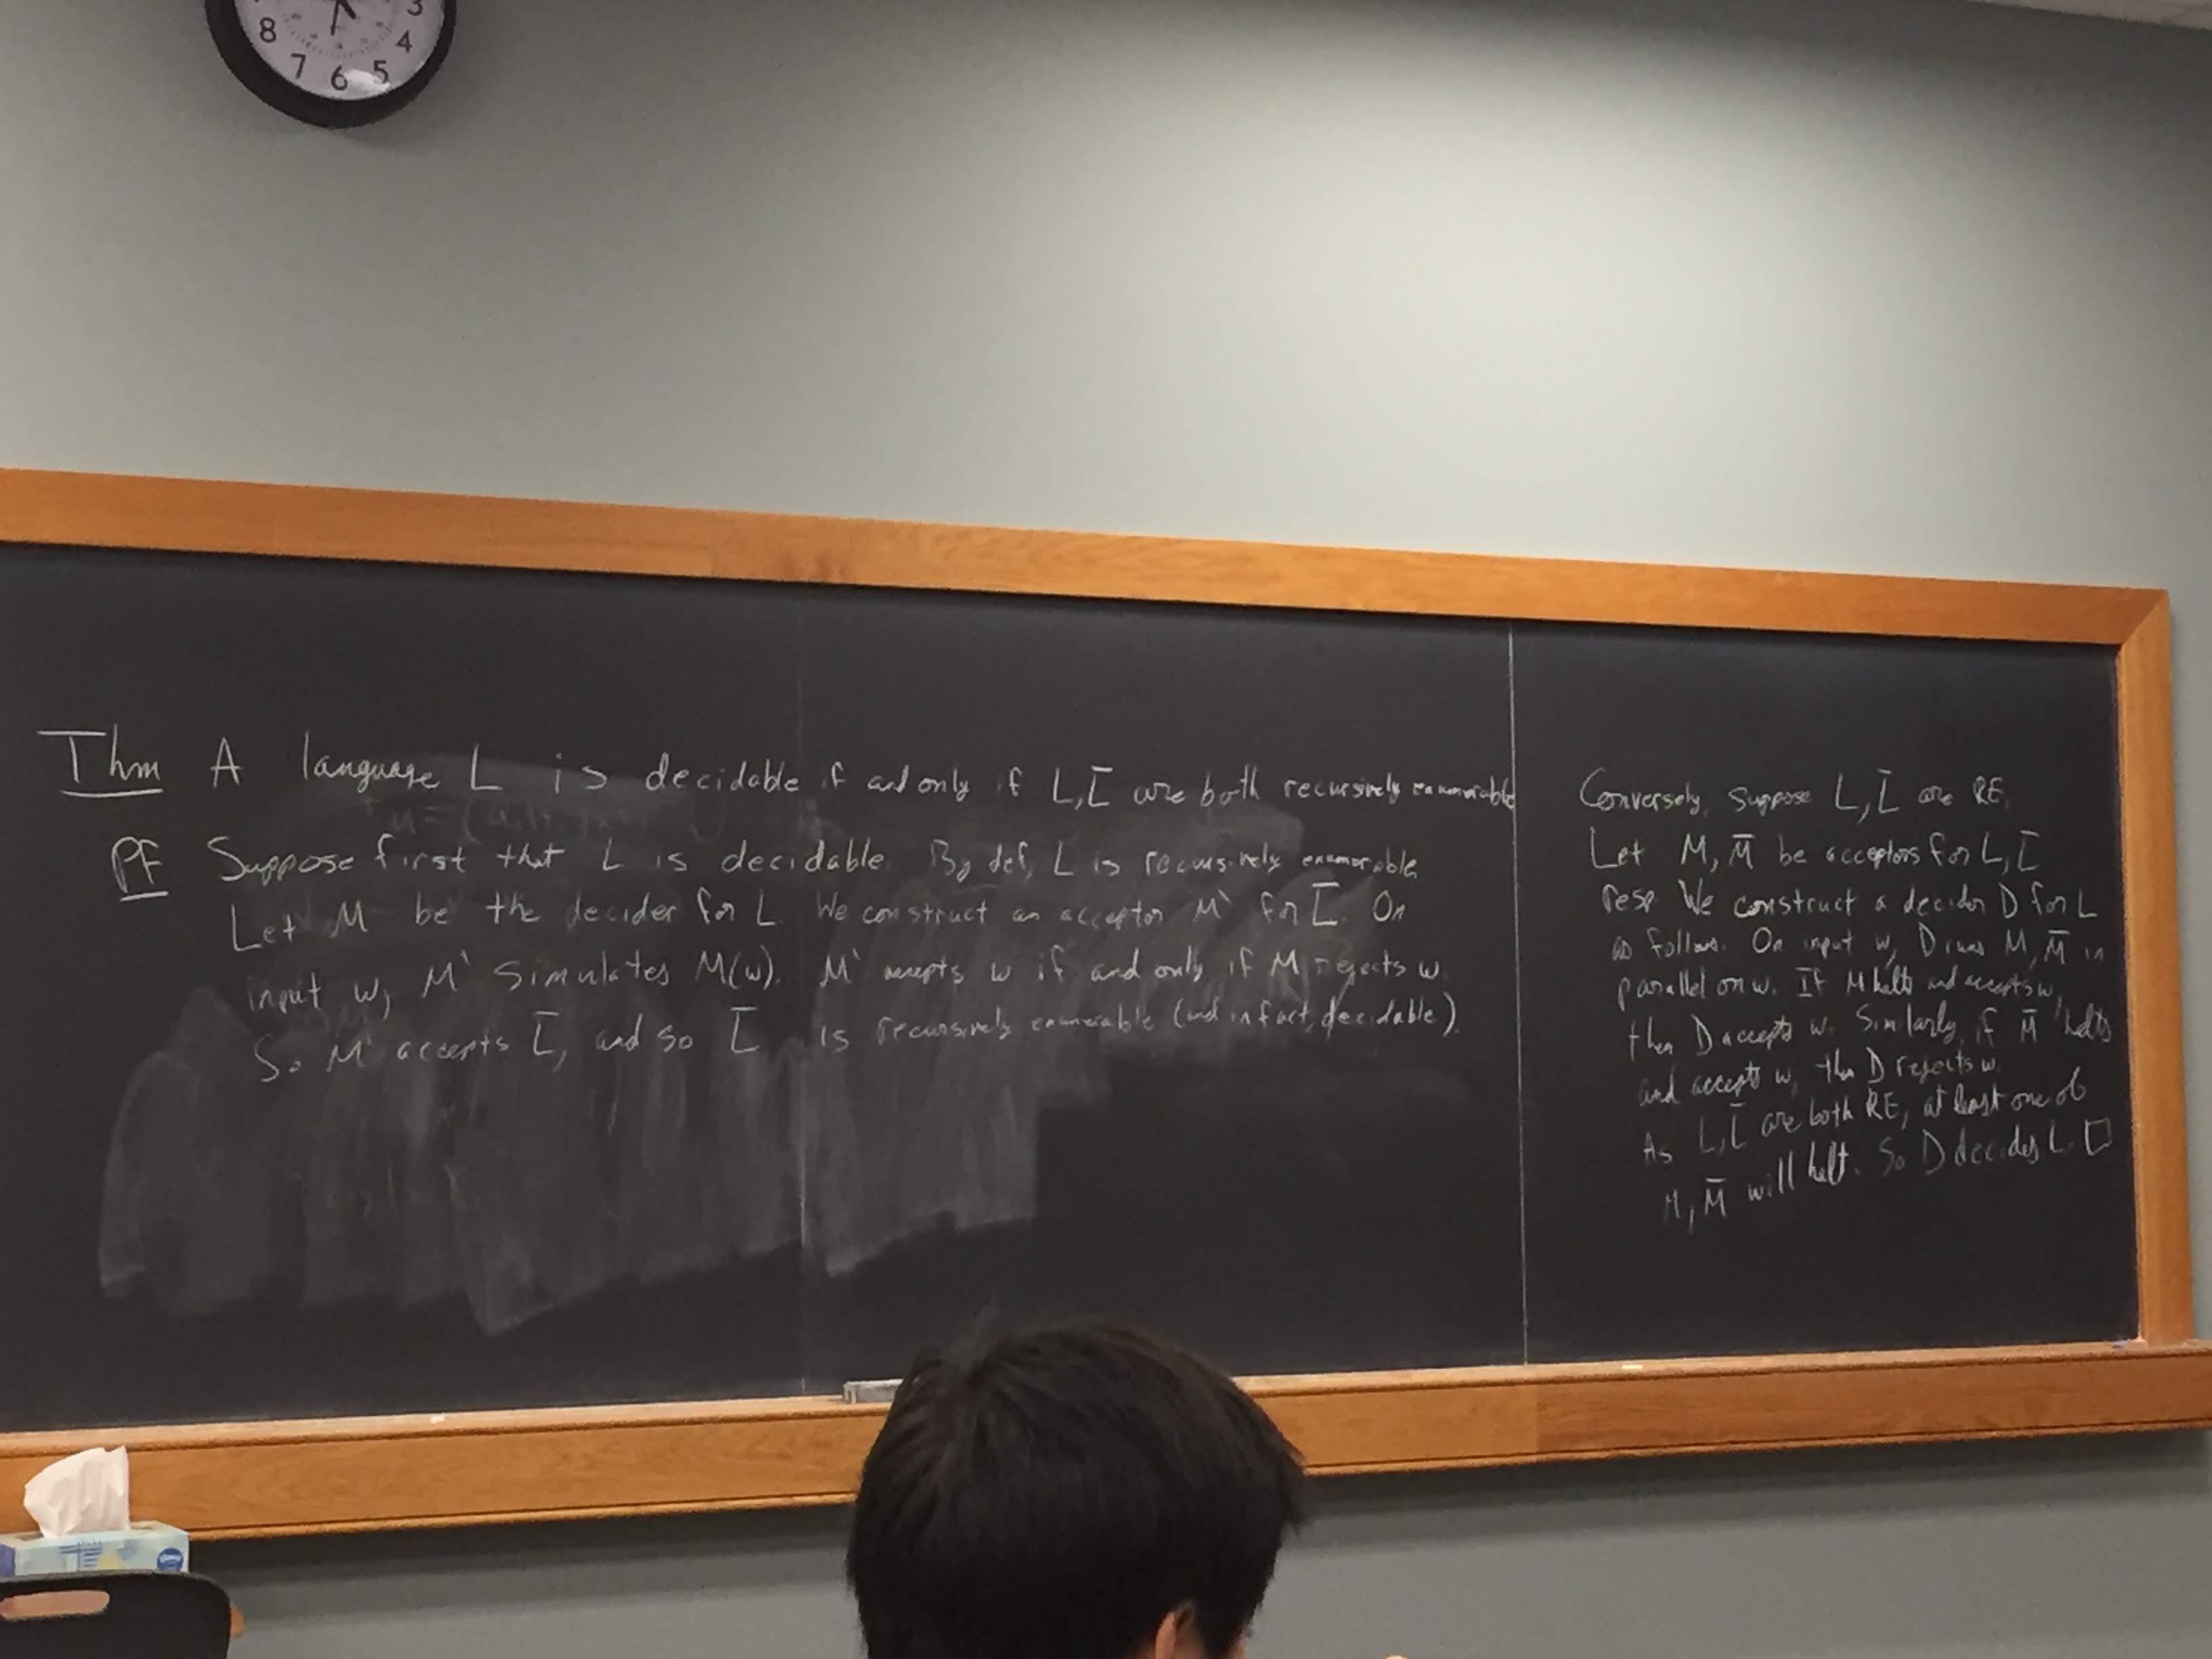 3
8
4
7
6
5
Thm A language L is decidable if and only if L, L̅ are both recursively enumerable
PF Suppose first that L is decidable. By def, L is recursively enumerable.
Let M be the decider for L. We construct an acceptor M' for L̅. On
input w, M' simulates M(w). M' accepts w if and only if M rejects w.
So M' accepts L̅, and so L̅ is recursively enumerable (and in fact, decidable).
Conversely, suppose L, L̅ are RE.
Let M, M̅ be acceptors for L, L̅
resp. We construct a decider D for L
as follows. On input w, D runs M, M̅ in
parallel on w. If M halts and accepts w,
then D accepts w. Similarly, if M̅ halts
and accepts w, then D rejects w.
As L, L̅ are both RE, at least one of
M, M̅ will halt. So D decides L. □